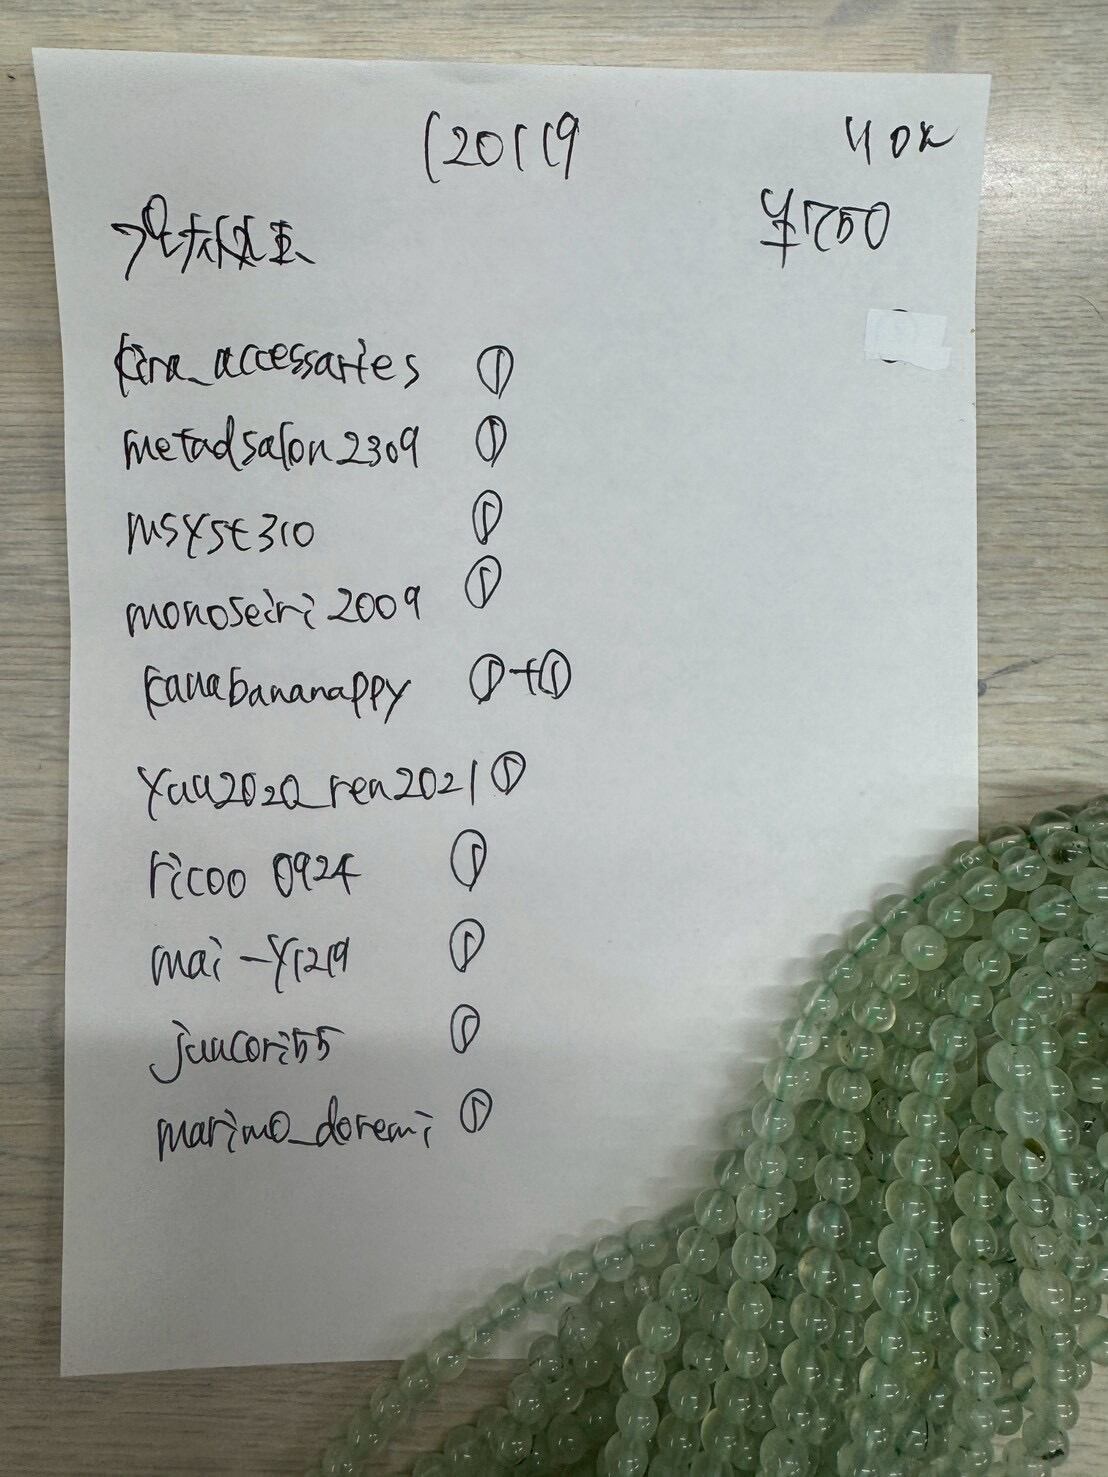 120119 40本
¥1750
kira_accessaries ①
metadsalon2309 ①
msyst310 ①
monoseiri2009 ①
kanabananappy ①+①
yuu2020_ren2021 ①
ricoo 0924 ①
mai-y1219 ①
juucori55 ①
marimo_doremi ①